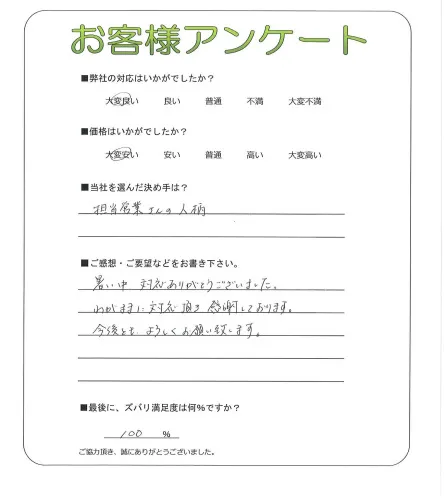 お客様アンケート
■弊社の対応はいかがでしたか？
大変良い 良い 普通 不満 大変不満
■価格はいかがでしたか？
大変安い 安い 普通 高い 大変高い
■当社を選んだ決め手は？
担当営業さんの人柄
■ご感想・ご要望などをお書き下さい。
暑い中 対応ありがとうございました。
わがままに対応頂き 感謝しております。
今後とも よろしくお願い致します。
■最後に、ズバリ満足度は何%ですか？
100 %
ご協力頂き、誠にありがとうございました。